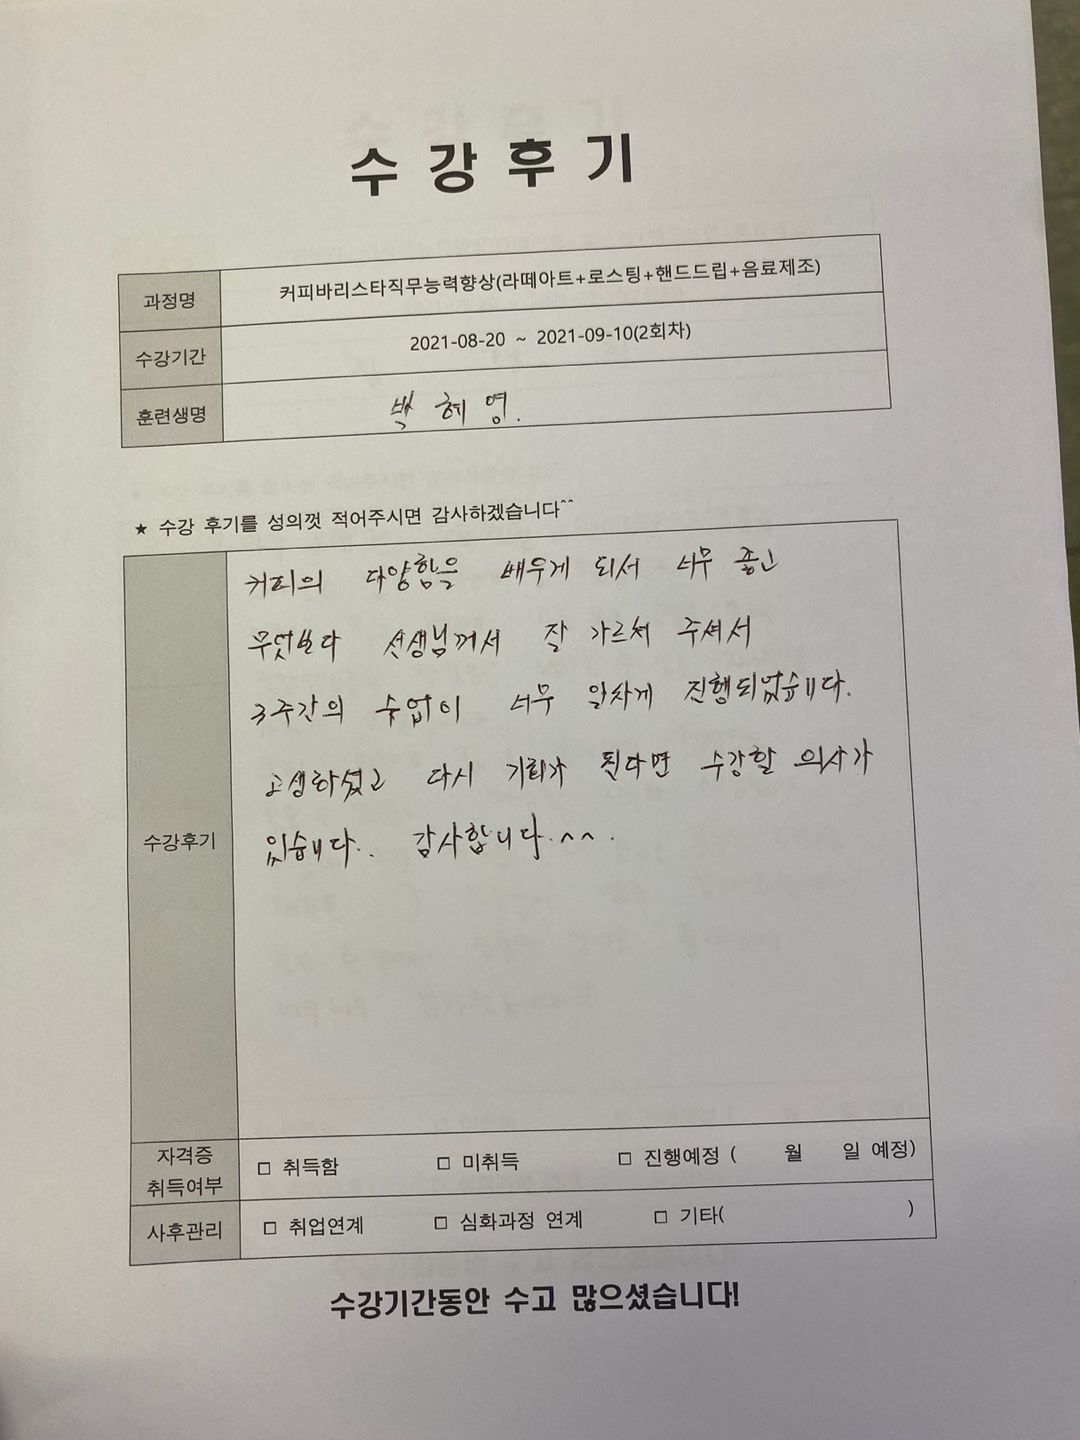 수강후기
과정명 커피바리스타직무능력향상(라떼아트+로스팅+핸드드립+음료제조)
수강기간 2021-08-20 ~ 2021-09-10(2회차)
훈련생명 박혜영.
★ 수강 후기를 성의껏 적어주시면 감사하겠습니다^^
커피의 다양함을 배우게 되서 너무 좋고
무엇보다 선생님께서 잘 가르쳐 주셔서
3주간의 수업이 너무 알차게 진행되었습니다.
수강후기
고생하셨고 다시 기회가 된다면 수강할 의사가
있습니다.. 감사합니다.^^.
자격증 취득여부 □ 취득함 □ 미취득 □ 진행예정 ( 월 일 예정)
사후관리 □ 취업연계 □ 심화과정 연계 □ 기타( )
수강기간동안 수고 많으셨습니다!